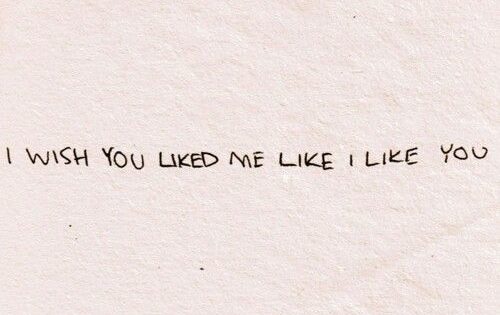 I WISH YOU LIKED ME LIKE I LIKE YOU